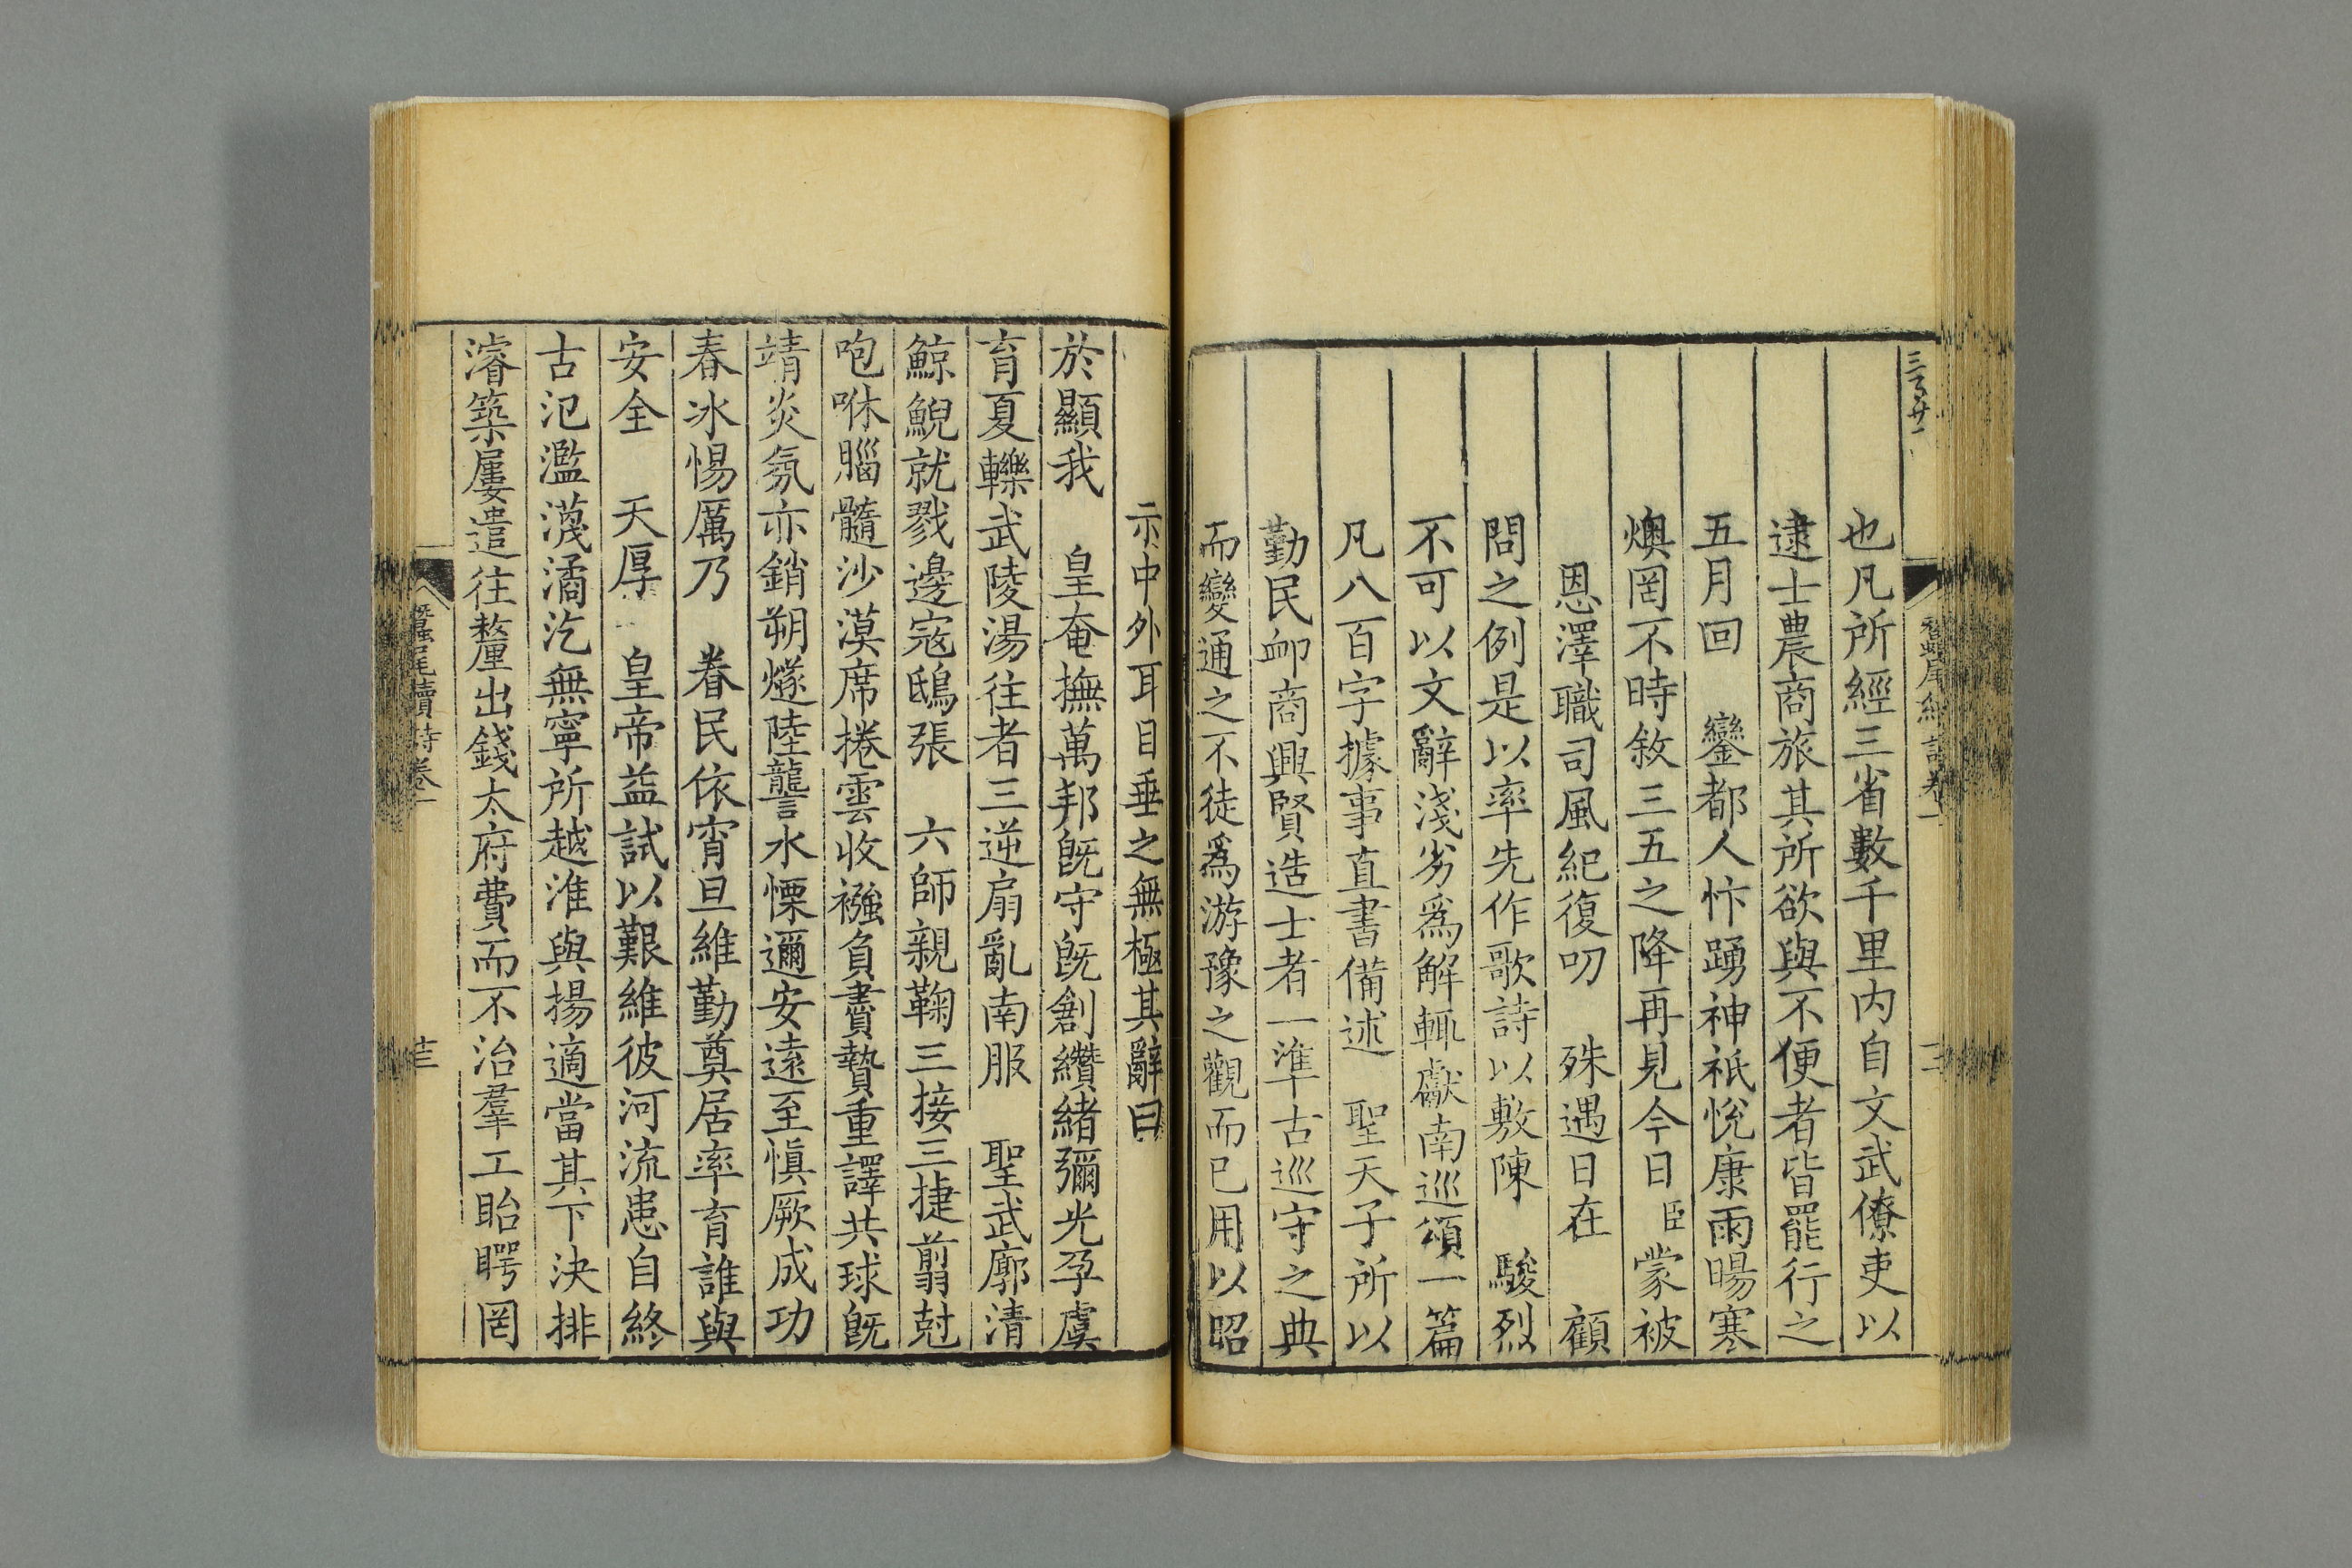 也凡所經三省數千里内自文武僚吏以
逮士農商旅其所欲與不便者皆罷行之
五月回 鑾都人忭踴神祇悅康雨暘寒
燠罔不時敘三五之降再見今日臣蒙被
恩澤職司風紀復叨 殊遇日在 顧
問之例是以率先作歌詩以敷陳 駿烈
不可以文辭淺劣爲解輒獻南巡頌一篇
凡八百字據事直書備述 聖天子所以
勤民䘏商興賢造士者一準古巡守之典
而變通之不徒爲游豫之觀而已用以昭
示中外耳目垂之無極其辭曰
於顯我 皇奄撫萬邦旣守旣創纘緒彌光孕虞
育夏轢武陵湯往者三逆扇亂南服 聖武廓清
鯨鯢就戮邊寇鴟張 六師親鞠三接三捷翦尅
咆咻腦髓沙漠席捲雲收襁負賮贄重譯共球旣
靖炎氛亦銷朔燧陸讋水慄邇安遠至愼厥成功
春冰惕厲乃 眷民依宵旦維勤奠居率育誰與
安全 天厚 皇帝益試以艱維彼河流患自終
古氾濫濊潏汔無寧所越淮與揚適當其下決排
濬築屢遣往釐出錢太府費而不治羣工眙瞤罔
蠶尾續詩卷一